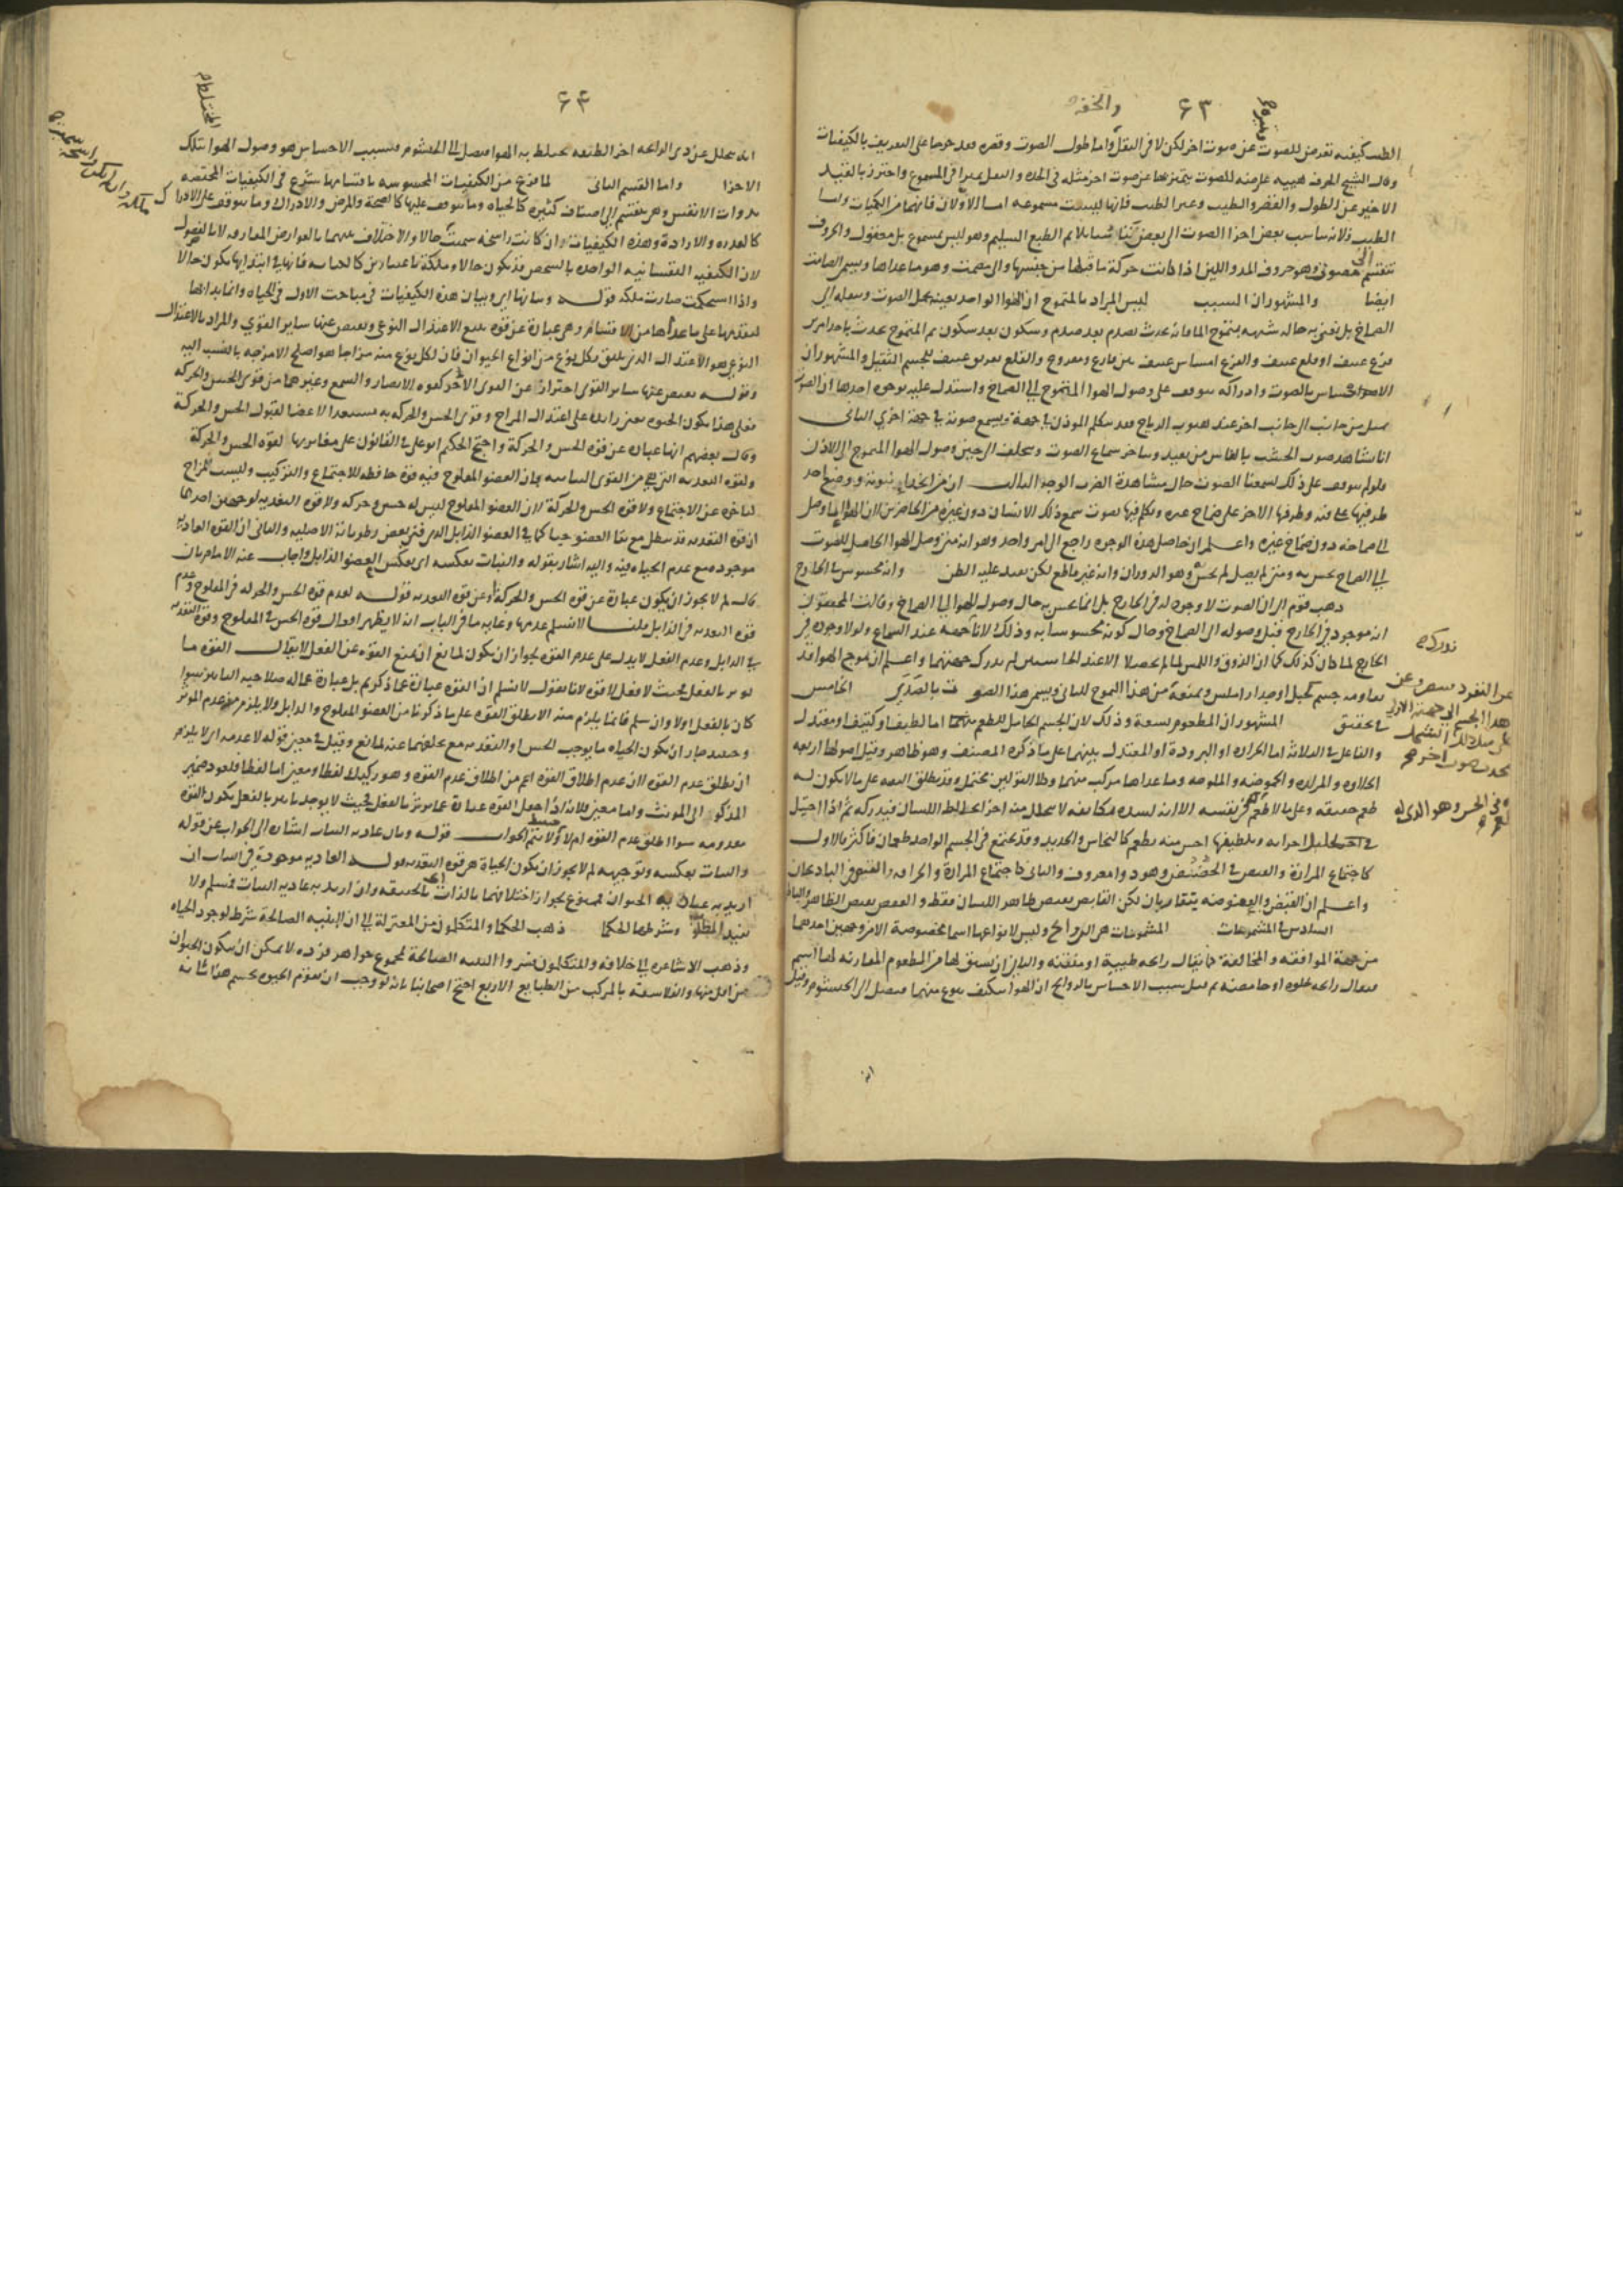 ٤٣ والخفه
كيفيه تعرض للصوت عن صوت اخر لكن لا في الثقل واما طول الصوت وقصره
وقال الشيخ الحرف هيئه عارضه للصوت يتميز بها عن صوت اخر مثله في الحده والثقل تميزا في المسموع واحترز بالقيد
الاخير عن الطول والقصر والطيب وغير الطيب فانها ليست مسموعه اما الاولان فانهما من الكميات واما
الطيب فلانه تناسب بعض اجزا الصوت الى بعض الطبع السليم وهو ليس بمسموع بل معقول والحروف
تنقسم الى مصوت وهو حروف المد واللين اذا كانت حركة ما قبلها من جنسها والى مصمت وهو ما عداها ويسمى الصامت
ايضا والمشهور ان السبب ليس المراد بالتموج ان الهوا الواحد بعينه يحمل الصوت
الصماخ بل نعني به حاله شبيهه بتموج الما فانه يحدث بصدم بعد صدم وسكون بعد سكون ثم التموج يحدث باحد امرين
قرع عنيف او قلع عنيف والقرع امساس عنيف والقلع تفريق عنيف للجسم الثقيل والمشهور ان
الاحساس بالصوت وادراكه يتوقف على وصول الهوا المتموج الى الصماخ واستدل عليه بوجوه احدها ان الصوت
يميل من جانب الى جانب اخر عند هبوب الرياح ويسمع صوته في جهة اخرى الثاني
انا نشاهد ضرب الخشب بالفاس من بعيد سماع الصوت الى حين وصول الهوا المتموج الى الاذن
ولو لم يتوقف على ذلك لسمعنا الصوت حال مشاهدة الضرب الوجه الثالث ان من اتخذ انبوبة ووضع احد
طرفيها على فيه وطرفها الاخر على صماخ غيره وتكلم فيها بصوت سمع ذلك الانسان دون غيره من الحاضرين لان الهوا وصل
الى صماخه دون صماخ غيره واعلم ان حاصل هذه الوجوه راجع الى امر واحد وهو انه متى وصل الهوا الحامل للصوت
الى الصماخ يحس به ومتى لم يصل لم يحس وهو الدوران وانه غير قاطع لكن يفيد غلبه الظن وانه محسوس في الخارج
ذهب قوم الى ان الصوت لا وجود له في الخارج بل انما يحس به حال وصول الهوا الى الصماخ وقالت المحققون
انه موجود في الخارج قبل وصوله الى الصماخ وحال كونه محسوسا به وذلك لانا جهته عند السماع ولو لا وجوده في
الخارج لما كان كذلك كما ان الذوق واللمس لما لم يحصلا الا عند الحاستين لم ندرك جهتهما واعلم ان تموج الهوا قد
يقاومه جسم كجبل او جدار املس ويمنعه من هذا التموج للثاني ويسمى هذا الصوت بالصدى الخامس
في تحقيق المشهور ان المطعوم تسعة وذلك لان الجسم الحامل للطعم اما لطيف او كثيف او معتدل
والفاعل في الثلاثة اما الحراره او البروده او المعتدل بينهما على ما ذكره المصنف وهو ظاهر وقيل اصولها اربعه
الحلاوه والمراره والحموضه والملوحه وما عداها مركب منهما وكلا القولين محتمل وقد يطلق التفه على ما لا يكون له
طعم حقيقه وعلى ما لا طعم في نفسه الا انه لشده تكاثفه لا يتحلل منه اجزا تخالط اللسان فيدركه ثم اذا احتيل
في تحليل اجزائه وتلطيفها احس منه بطعم كالنحاس والحديد وقد يجتمع في الجسم الواحد طعمان فاكثر فالاول
كاجتماع المرارة والقبض في الحضض وهو دوا معروف والثاني كاجتماع المرارة والحرافه والقبض في الباذنجان
واعلم ان القبض والعفوصه يتقاربان لكن القابض يقبض ظاهر اللسان فقط والعفص يقبض الظاهر والباطن
السادس في المشمومات المشمومات هي الروائح وليس لانواعها اسما مخصوصة الا من وجهين احدهما
من جهة الموافقه والمخالفة فيقال رائحه طيبة او منتنه والثاني ان يشتق لها من المطعوم المقارنه لها اسم
فيقال رائحه حلوه او حامضه ثم قيل سبب الاحساس بالروائح ان الهوا يتكيف بنوع منهما فيصل الى الخيشوم وقيل
هذا الجسم الى جهته الاولى
يحدث صوت اخر
٤٤
انه يتحلل عن ذي الرائحه اجزا لطيفه تختلط به الهوا فيصل الى الخيشوم فسبب الاحساس هو وصول الهوا بتلك
الاجزا واما القسم الثاني لما فرغ من الكيفيات المحسوسه باقسامها شرع في الكيفيات المختصه
بذوات الانفس وهي تنقسم الى اصناف كثيره كالحياه وما يتوقف عليها كالصحة والمرض والادراك وما يتوقف على الادراك
كالقدره والارادة وهذه الكيفيات ان كانت راسخه سميت حالا والاختلاف بينهما بالعوارض المفارقه لا بالفصول
لان الكيفيه النفسانيه الواحده بالشخص قد يكون حالا وملكة باعتبارين كالكتابه فانها في ابتدائها تكون حالا
واذا استحكمت صارت ملكه قوله وبيان هذه الكيفيات في مباحث الاول في الحياه وانما بدا بها
لتقدمها على ما عداها من الاقسام وهي عبارة عن قوه تتبع الاعتدال النوعي ويفيض عنها ساير القوي والمراد بالاعتدال
النوعي هو الاعتدال الذي يليق بكل نوع من انواع الحيوان فان لكل نوع منه مزاجا هو اصلح الامزجه بالنسبه اليه
وقوله يفيض عنها ساير القوى احتراز عن القوى الاخر كقوه الابصار والسمع وغيرهما من قوى الحس والحركه
فعلى هذا يكون الحيوه على اعتدال المزاج وقوى الحس والحركه به يستعد الاعضا لقبول الحس والحركة
وقال بعضهم انها عباره عن قوة الحس والحركة واحتج الحكيم ابو علي في القانون على مغايرتها لقوه الحس والحركة
ولقوه التغذيه التي هي من القوى النباتيه بان العضو المفلوج فيه قوة حافظه للاجتماع والتركيب وليست للمزاج
لتاخره عن الاجتماع ولا قوه الحس والحركة لان العضو المفلوج ليس له حس وحركه ولا قوه التغذيه لوجهين احدهما
ان قوة التغذيه قد تبطل مع بقا العضو حيا كما في العضو الذابل الاصليه والثاني ان القوه الغاذيه
موجوده مع عدم الحياه فيه واليه اشار بقوله والنبات بعكسه اي بعكس العضو الذابل واجاب عنه الامام بان
قال لم لا يجوز ان يكون عبارة عن قوه الحس والحركة او عن قوه التغذيه قوله لعدم قوه الحس والحركه في المفلوج وعدم
قوه التغذيه في الذابل قلنا لا نسلم عدمها وغايه ما في الباب ان لا يظهر افعال قوة الحس في المفلوج وقوة التغذيه
في الذابل وعدم الفعل لا يدل على عدم القوه لجواز ان يكون لمانع ان يمنع القوه عن الفعل لا يقال القوه ما
يوثر بالفعل فحيث لا فعل لا قوه لانا نقول لا نسلم ان القوه عبارة عما ذكرتم بل عبارة عما له صلاحيه التاثير سوا
كان بالفعل اولا وان سلم فانما يلزم منه الا يطلق القوه على ما ذكرنا من العضو المفلوج والذابل ولا يلزم منه عدم الموثر
وحينئذ جاز ان يكون الحياه ما يوجب الحس او التغذيه مع تخلفهما عنه لمانع وقيل في معنى قوله لا عدمه اي لا يلزم
ان يطلق عدم القوه لان عدم اطلاق القوه اعم من اطلاق عدم القوه وهو ركيك لفظا ومعنى اما لفظا فلعود ضمير
المذكور الى المونث واما معنى فلانه اذا جعل القوه عبارة عما يوثر بالفعل فحيث لا يوجد تاثير بالفعل يكون القوه
معدومه سوا اطلق عدم القوه ام لا فلا يتم الجواب قوله وبان غاذيه النبات اشاره الى الجواب عن قوله
والنبات بعكسه وتوجيهه لم لا يجوز ان يكون الحياة هي قوه التغذيه قوله الغاذيه موجودة في النبات ان
اريد به غاذيه الحيوان فممنوع لجواز اختلافهما بالذات والحقيقه وان اريد به غاذيه النبات فمسلم ولا
يفيد المطلوب وشرطها الحكما ذهب الحكما والمتكلمون من المعتزلة الى ان البنيه الصالحة شرط لوجود الحياه
وذهب الاشاعره الى خلافه والمتكلمون فسروا البنيه الصالحة بمجموع جواهر فرده لا يمكن ان يتكون الحيوان
من اقل منها والفلاسفه بالمركب من الطبايع الاربع احتج اصحابنا بانه لو وجب ان تقوم الحيوه بجسم هذا شانه